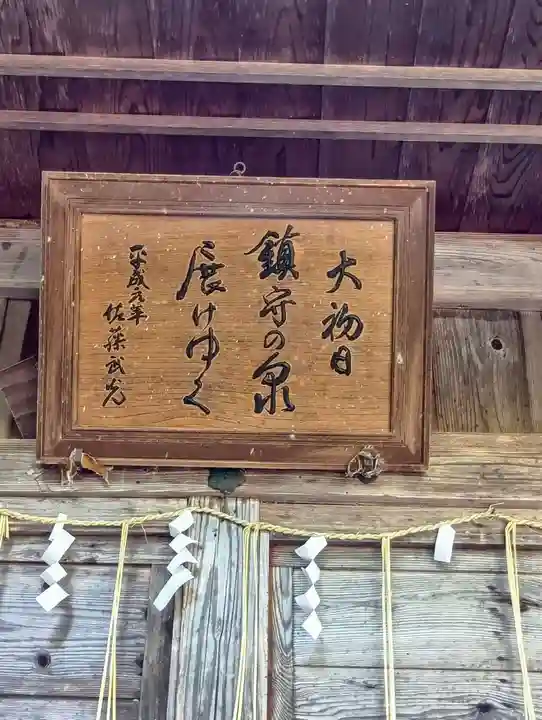 大初日
鎮守の泉
展けゆく
平成元年
佐藤武